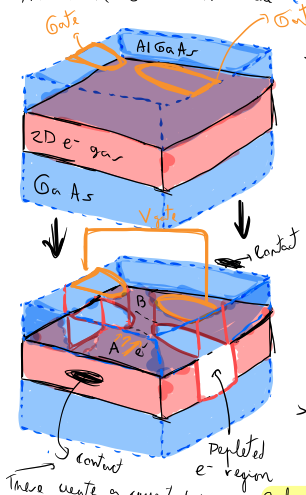 Gate
AlGaAs
2D e⁻ gas
Ga As
Vgate
contact
B
A
e⁻
contact
Depleted
e⁻ region
These create a